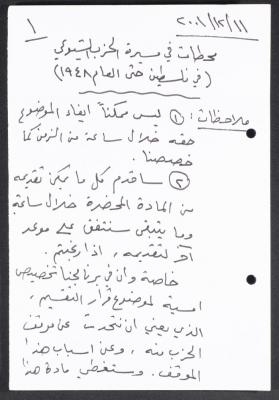 ١
٢٠٠٨/١٢/١١
محطات في مسيرة الحزب الشيوعي
(في فلسطين حتى العام ١٩٤٨)
ملاحظات: ① ليس ممكناً ايفاء الموضوع
حقه خلال ساعة من الزمن كما
خصصنا.
② سأقدم كل ما يمكن تقديمه
من المادة المحضرة خلال ساعة
وما يتبقى سنتفق على موعد
آخر لتقديمه، اذا رغبتم.
خاصة وان في برنامجنا تخصيص
امسية لموضوع قرار التقسيم،
الذي يعني ان نتحدث عن موقف
الحزب منه، وعن اسباب هذا
الموقف. وستغطي مادة هذا